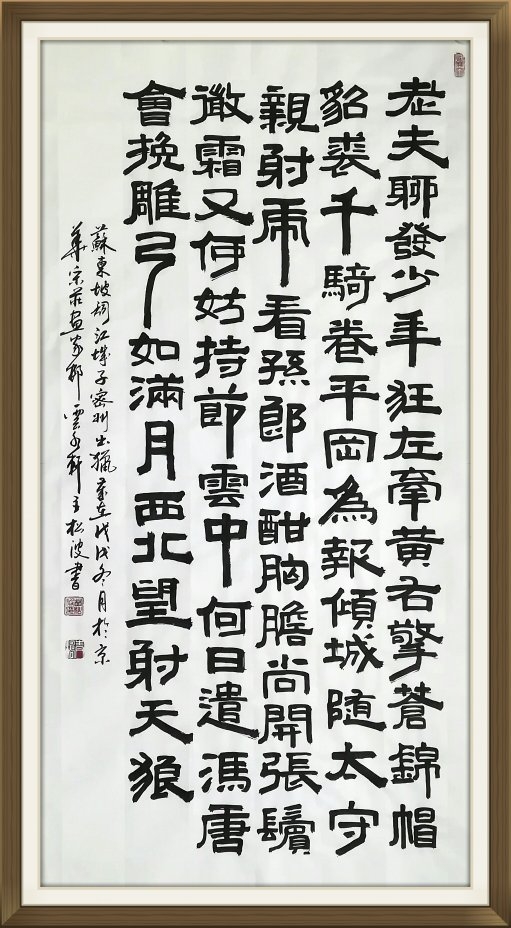 老夫聊發少年狂左牽黄右擎蒼錦帽
貂裘千騎卷平岡為報傾城隨太守
親射虎看孫郎酒酣胸膽尚開張鬢
微霜又何妨持節雲中何日遣馮唐
會挽雕弓如滿月西北望射天狼
蘇東坡詞江城子密州出獵歲在戊戌冬月於京
華宋莊畫家邨雲水軒主松波書